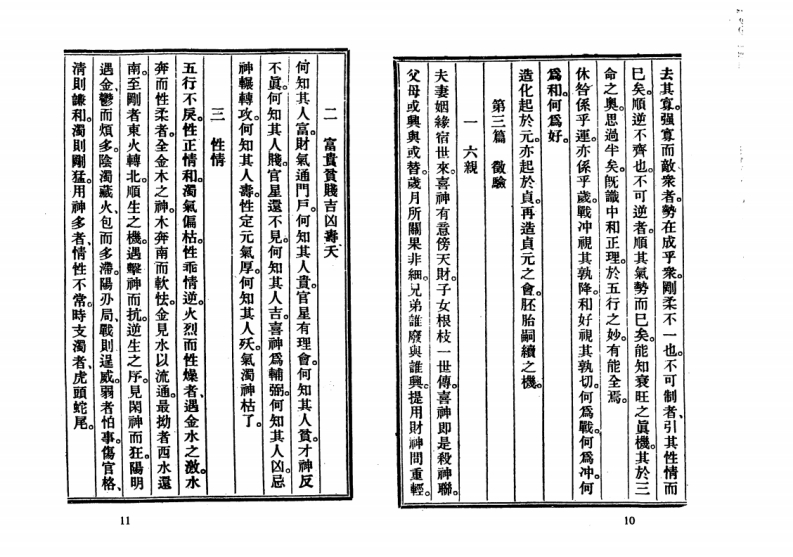 去其寡。强寡而敵衆者。勢在成乎衆。剛柔不一也。不可制者、引其性情而
巳矣。順逆不齊也。不可逆者。順其氣勢而巳矣。能知衰旺之眞機。其於三
命之奥。思過半矣。旣識中和正理。於五行之妙。有能全焉。
休咎係乎運。亦係乎歲。戰冲視其孰降。和好視其孰切。何爲戰。何爲冲。何
爲和。何爲好。
造化起於元。亦起於貞。再造貞元之會。胚胎嗣續之機。
第三篇 徵驗
一 六親
夫妻姻緣宿世來。喜神有意傍天財。子女根枝一世傳。喜神即是殺神聯。
父母或興與或替。歲月所關果非細。兄弟誰廢與誰興。提用財神問重輕。
10
二 富貴貧賤吉凶壽夭
何知其人富。財氣通門戶。何知其人貴。官星有理會。何知其人貧。才神反
不眞。何知其人賤。官星還不見。何知其人吉。喜神爲輔弼。何知其人凶。忌
神輾轉攻。何知其人壽。性定元氣厚。何知其人殀。氣濁神枯了。
三 性情
五行不戾。性正情和。濁氣偏枯。性乖情逆。火烈而性燥者、遇金水之激。水
奔而性柔者。全金木之神。木奔南而軟怯。金見水以流通。最拗者西水還
南。至剛者東火轉北。順生之機。遇擊神而抗。逆生之序。見閑神而狂。陽明
遇金、鬱而煩多。陰濁藏火、包而多滯。陽刃局、戰則逞威。弱者怕事。傷官格、
清則謙和。濁則剛猛。用神多者、情性不常。時支濁者、虎頭蛇尾。
11